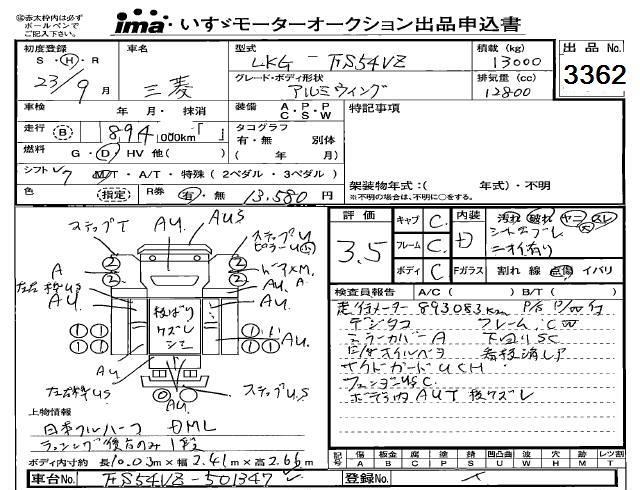 ※赤太枠内は必ずボールペンでご記入下さい。
ima いすゞモーターオークション出品申込書
初度登録 S・H・R 23/9月
車名 三菱
型式 LKG-FS54VZ
積載(kg) 13000
出品No. 3362
グレード・ボディ形状 アルミウィング
排気量(cc) 12800
車検 年 月・抹消
装備 A・P・P C・S・W
特記事項
走行 B 894,000km「 」
タコグラフ 有・無 別体 ( 年 月)
燃料 G・D・HV 他( )
シフト 7 MT・A/T・特殊(2ペダル・3ペダル)
色 (指定) R券 有・無 13,580円
架装物年式:( 年式)・不明
※不明の場合は、不明に○をする。
評価 3.5
キャブ C
フレーム C
ボディ C
内装 D
汚れ 破れ ヤニ スレ
シートヤブレ
ニオイ有り
Fガラス 割れ 線 点傷 イバリ
検査員報告 A/C( ) B/T( )
走行メーター 893083km
デジタコ フレームC
ミラーカバーA 下回りSC
サイドガードUCH
フェンダーUSC
ボデー内AUT 板クズレ
ステップT AU. AUS
A
AU AU. A
左右 板US
板ばり
クズレ
AU. AU
ステップUS
AU.
② ② ② ②
① ① ① ①
① ① ① ①
上物情報
日本フルハーフ DML
ラッシング後方のみ1段
ボディ内寸約 長10.03m×幅2.41m×高2.66m
記号 A傷 B板 C腐 P塗 S錆 U凹 W波 H穴 M跡 Tレツ割
車台No. FS54VZ-501347
登録No.